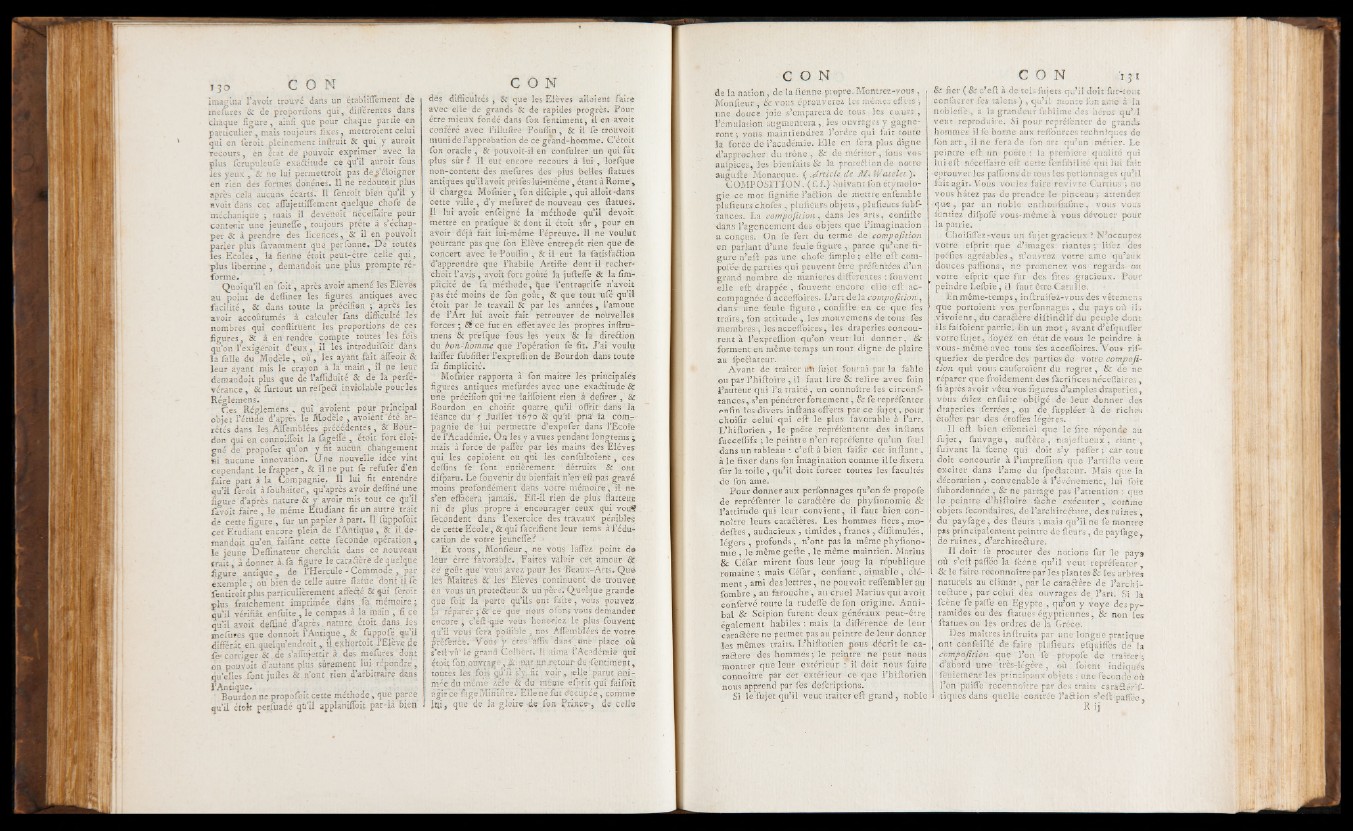 130 CON CON
imagina l'avoir trouvé dans un établiſſement de
meſures & de proportions qui, différentes dans
chaque figure, ainſi que pour chaque partie en
particulier, mais toujours fixes, mettroient celui
qui en ſeroit pleinement inſtruit & qui y auroit
recours, en état de pouvoir exprimer avec la
plus ſcrupuleuſe exactitude ce qu'il auroit ſous
les yeux, & ne lui permettroit pas de s'éloigner
en rien des formes données. Il ne redoutoit plus
après cela aucuns écarts. Il ſentoit bien qu'il y
avoit dans cet aſſujettiſſement quelque choſe de
méchanique ; mais il devenoit néceſſaire pour
contenir une jeuneſſe, toujours prête à s'échap-
per & à prendre des licences, & il en pouvoit
parler plus ſavamment que perſonne. De toutes
les Ecoles, la ſienne étoit peut-être celle qui,
plus libertine, demandoit une plus prompte ré-
forme.
Quoiqu'il en ſoit, après avoir amené les Elèves
au point de deſſiner les figures antiques avec
facilité, & dans toute la préciſion ; après les
avoir accoûtumés à calculer ſans difficulté les
nombres qui conſtituent les proportions de ces
figures, & à en rendre compte toutes les fois
qu'on l'exigeroit d'eux, il les introduiſoit dans
la ſalle du Modèle, où, les ayant fait aſſeoir &
leur ayant mis le crayon à la main, il ne leur
demandoit plus que de l'aſſiduité & de la perſé-
vérance, & ſurtout un reſpect inviolable pour les
Réglemens.
Ces Réglemens, qui avoient pour principal
objet l'étude d'après le Modèle, avoient été ar-
rêtés dans les Aſſemblées précédentes, & Bour-
don qui en connoiſſoit la ſageſſe, étoit fort éloi-
gné de propoſer qu'on y fît aucun changement
ni aucune innovation. Une nouvelle idée vint
cependant le frapper, & il ne put ſe refuſer d'en
faire part à la Compagnie. Il lui fit entendre
qu'il ſeroit à ſouhaiter, qu'après avoir deſſiné une
figure d'après nature & y avoir mis tout ce qu'il
ſavoit faire, le même Etudiant fit un autre trait
de cette figure, ſur un papier à part. Il ſuppoſoit
cet Etudiant encore plein de l'Antique, & il de-
mandoit qu'en faiſant cette ſeconde opération,
le jeune Deſſinateur cherchât dans ce nouveau
trait, à donner à ſa figure le caractère de quelque
figure antique, de l'Hercule-Commode, par
exemple, ou bien de telle autre ſtatue dont il ſe
ſentiroit plus particulièrement affecté & qui ſeroit
plus fraîchement imprimée dans ſa mémoire ;
qu'il vérifiât enſuite, le compas à la main, ſi ce
qu'il avoit deſſiné d'après nature étoit dans les
meſures que donnoit l'Antique, & ſuppoſé qu'il
différât en quelqu'endroit, il exhortoit l'Elève de
ſe corriger & de s'aſſujettir à des meſures dont
on pouvoit d'autant plus sûrement lui répondre,
qu'elles ſont juſtes & n'ont rien d'arbitraire dans
l'Antique.
Bourdon ne propoſoit cette méthode, que parce
qu'il étoit perſuadé qu'il applaniſſoit par-là bien
des difficultés, & que les Elèves alloient faire
avec elle de grands & de rapides progrès. Pour
être mieux fondé dans ſon ſentiment, il en avoit
conféré avec l'illuſtre Pouſſin, & il ſe trouvoit
muni de l'approbation de ce grand-homme. C'étoit
ſon oracle, & pouvoit-il en conſulter un qui fût
plus sûr ? Il eut encore recours à lui, lorſque
non-content des meſures des plus belles ſtatues
antiques qu'il avoit priſes lui-même, étant à Rome,
il chargea Moſnier, ſon diſciple, qui alloit dans
cette ville, d'y meſurer de nouveau ces ſtatues.
Il lui avoit enſeigné la méthode qu'il devoit
mettre en pratique & dont il étoit sûr, pour en
avoir déja fait lui-même l'épreuve. Il ne voulut
pourtant pas que ſon Elève entreprît rien que de
concert avec le Pouſſin, & il eut la ſatisfaction
d'apprendre que l'habile Artiſte dont il recher-
choit l'avis, avoit fort goûté la juſteſſe & la ſim-
plicité de ſa méthode, que l'entrepriſe n'avoit
pas été moins de ſon goût, & que tout uſé qu'il
étoit par le travail & par les années, l'amour
de l'Art lui avoit fait retrouver de nouvelles
forces ; & ce fut en effet avec les propres inſtru-
mens & preſque ſous les yeux & la direction
du bon-homme que l'opération ſe fit. J'ai voulu
laiſſer ſubſiſter l'expreſſion de Bourdon dans toute
ſa ſimplicité.
Moſnier rapporta à ſon maître les principales
figures antiques meſurées avec une exactitude &
une préciſion qui ne laiſſoient rien à deſirer, &
Bourdon en choiſit quatre qu'il offrit dans la
ſéance du 5 Juillet 1670 & qu'il pria la com-
pagnie de lui permettre d'expoſer dans l'Ecole
de l'Académie. On les y a vues pendant longtems ;
mais à force de paſſer par les mains des Elèves
qui les copioient ou qui les conſultoient, ces
deſſins ſe ſont entièrement détruits & ont
diſparu. Le ſouvenir du bienfait n'en eſt pas gravé
moins profondément dans votre mémoire, il ne
s'en effacera jamais. Eſt-il rien de plus flatteur
ni de plus propre à encourager ceux qui vous
ſecondent dans l'exercice des travaux pénibles
de cette Ecole, & qui ſacrifient leur tems à l'édu-
cation de votre jeuneſſe ?
Et vous, Monſieur, ne vous laſſez point de
leur être favorable. Faites valoir cet amour &
ce goût que vous avez pour les Beaux-Arts. Que
les Maîtres & les Elèves continuent de trouver
en vous un protecteur & un père. Quelque grande
que ſoit la perte qu'ils ont faite, vous pouvez
la réparer ; & ce que nous oſons vous demander
encore, c'eſt que vous honoriez le plus ſouvent
qu'il vous ſera poſſible, nos Aſſemblées de votre
préſence. Vous y êtes aſſis dans une place où
s'eſt vû le grand Colbert. Il aima l'Académie qui
étoit ſon ouvrage, & par un retour de ſentiment,
toutes les fois qu'il s'y fit voir, elle parut ani-
mée du même zèle & du même eſprit qui faiſoit
agir ce ſage Miniſtre. Elle ne fut occupée, comme
lui, que de la gloire de ſon Prince, de celle
CON CON 131
de la nation, de la ſienne propre. Montrez-vous,
Monſieur, & vous éprouverez les mêmes effets,
une douce joie s'emparera de tous les cœurs,
l'émulation augmentera, les ouvrages y gagne-
ront ; vous maintiendrez l'ordre qui fait toute
la force de l'académie. Elle en ſera plus digne
d'approcher du trône, & de mériter, ſous vos
auſpices, les bienfaits & la protection de notre
auguſte Monarque. (Article de M. Watelet).
COMPOSITION. (ſ. f.) Suivant ſon étymolo-
gie ce mot ſignifie l'action de mettre enſemble
pluſieurs choſes, pluſieurs objets, pluſieurs ſubſ-
tances. La compoſition, dans les arts, conſiſte
dans l'agencement des objets que l'imagination
a conçus. On ſe ſert du terme de compoſition
en parlant d'une ſeule figure, parce qu'une fi-
gure n'eſt pas une choſe ſimple ; elle eſt com-
poſée de parties qui peuvent être préſentées d'un
grand nombre de manieres différentes : ſouvent
elle eſt drappée, ſouvent encore elle eſt ac-
compagnée d'acceſſoires. L'art de la compoſition,
dans une ſeule figure, conſiſte en ce que ſes
traits, ſon attitude, les mouvemens de tous ſes
membres, les acceſſoires, les draperies concou-
rent à l'expreſſion qu'on veut lui donner, &
forment en même temps un tout digne de plaire
au ſpectateur.
Avant de traiter un ſujet fourni par la fable
ou par l'hiſtoire, il faut lire & relire avec ſoin
l'auteur qui l'a traité, en connoître les circonſ-
tances, s'en pénétrer fortement, & ſe repréſenter
enfin les divers inſtans offerts par ce ſujet, pour
choiſir celui qui eſt le plus favorable à l'art.
L'hiſtorien, le poëte repréſentent des inſtans
ſucceſſifs ; le peintre n'en repréſente qu'un ſeul
dans un tableau : c'eſt à bien ſaiſir cet inſtant,
à le fixer dans ſon imagination comme il le fixera
ſur la toile, qu'il doit forcer toutes les facultés
de ſon ame.
Pour donner aux perſonnages qu'on ſe propoſe
de repréſenter le caractère de phyſionomie &
l'attitude qui leur convient, il faut bien con-
noître leurs caractères. Les hommes fiers, mo-
deſtes, audacieux, timides, francs, diſſimulés,
légers, profonds, n'ont pas la même phyſiono-
mie, le même geſte, le même maintien. Marius
& Céſar mirent ſous leur joug la république
romaine : mais Céſar, confiant, aimable, clé-
ment, ami des lettres, ne pouvoit reſſembler au
ſombre, au farouche, au cruel Marius qui avoit
conſervé toute la rudeſſe de ſon origine. Anni-
bal & Scipion furent deux généraux peut-être
également habiles : mais la différence de leur
caractère ne permet pas au peintre de leur donner
les mêmes traits. L'hiſtorien nous décrit le ca-
ractère des hommes ; le peintre ne peut nous
montrer que leur extérieur : il doit nous faire
connoître par cet extérieur ce que l'hiſtorien
nous apprend par ſes deſcriptions.
Si le ſujet qu'il veut traiter eſt grand, noble
& fier (& c'eſt à de tels ſujets qu'il doit ſur-tout
conſacrer ſes talens), qu'il monte ſon ame à la
nobleſſe, à la grandeur ſublime des héros qu'il
veut reproduire. Si pour repréſenter de grands
hommes il ſe borne aux reſſources techniques de
ſon art, il ne fera de ſon art qu'un métier. Le
peintre eſt un poëte : la premiere qualité qui
lui eſt néceſſaire eſt cette ſenſibilité qui lui fait
éprouver les paſſions de tous les perſonnages qu'il
fait agir. Vous voulez faire revivre Curtius : ne
vous hâtez pas de prendre le pinceau : attendez
que, par un noble enthouſiaſme, vous vous
ſentiez diſpoſé vous-même à vous dévouer pour
la patrie.
Choiſiſſez-vous un ſujet gracieux ? N'occupez
votre eſprit que d'images riantes ; liſez des
poéſies agréables, n'ouvrez votre ame qu'aux
douces paſſions, ne promenez vos regards ou
votre eſprit que ſur des ſites gracieux. Pour
peindre Leſbie, il faut être Catulle.
En même-temps, inſtruiſez-vous des vêtemens
que portoient vos perſonnages, du pays où ils
vivoient, du caractère diſtinctif du peuple dont
ils faiſoient partie. En un mot, avant d'eſquiſſer
votre ſujet, ſoyez en état de vous le peindre à
vous-même avec tous ſes acceſſoires. Vous riſ-
queriez de perdre des parties de votre compoſi-
tion qui vous cauſeroient du regret, & de ne
réparer que froidement des ſacrifices néceſſaires,
ſi après avoir vêtu vos figures d'amples draperies,
vous étiez enſuite obligé de leur donner des
draperies ſerrées, ou de ſuppléer à de riches
étoffes par des étoffes légères.
Il eſt bien eſſentiel que le ſite réponde au
ſujet, ſauvage, auſtère, majeſtueux, riant,
ſuivant la ſcène qui doit s'y paſſer ; car tout
doit concourir à l'impreſſion que l'artiſte veut
exciter dans l'ame du ſpectateur. Mais que la
décoration, convenable à l'événement, lui ſoit
ſubordonnée, & ne partage pas l'attention : que
le peintre d'hiſtoire ſache exécuter, comme
objets ſecondaires, de l'architecture, des ruines,
du payſage, des fleurs : mais qu'il ne ſe montre
pas principalement peintre de fleurs, de payſage,
de ruines, d'architecture.
Il doit ſe procurer des notions ſur le pays
où s'eſt paſſée la ſcène qu'il veut repréſenter,
& le faire reconnoître par les plantes & les arbres
naturels au climat, par le caractère de l'archi-
tecture, par celui des ouvrages de l'art. Si la
ſcène ſe paſſe en Egypte, qu'on y voye des py-
ramides ou des ſtatues égyptiennes, & non les
ſtatues ou les ordres de la Grèce.
Des maîtres inſtruits par une longue pratique
ont conſeillé de faire pluſieurs eſquiſſes de la
compoſition que l'on ſe propoſe de traiter ;
d'abord une très-légère, où ſoient indiqués
ſeulement les principaux objets : une ſeconde où
l'on puiſſe reconnoître par des traits caractériſ-
tiques dans quelle contrée l'action s'eſt paſſée,
R ij